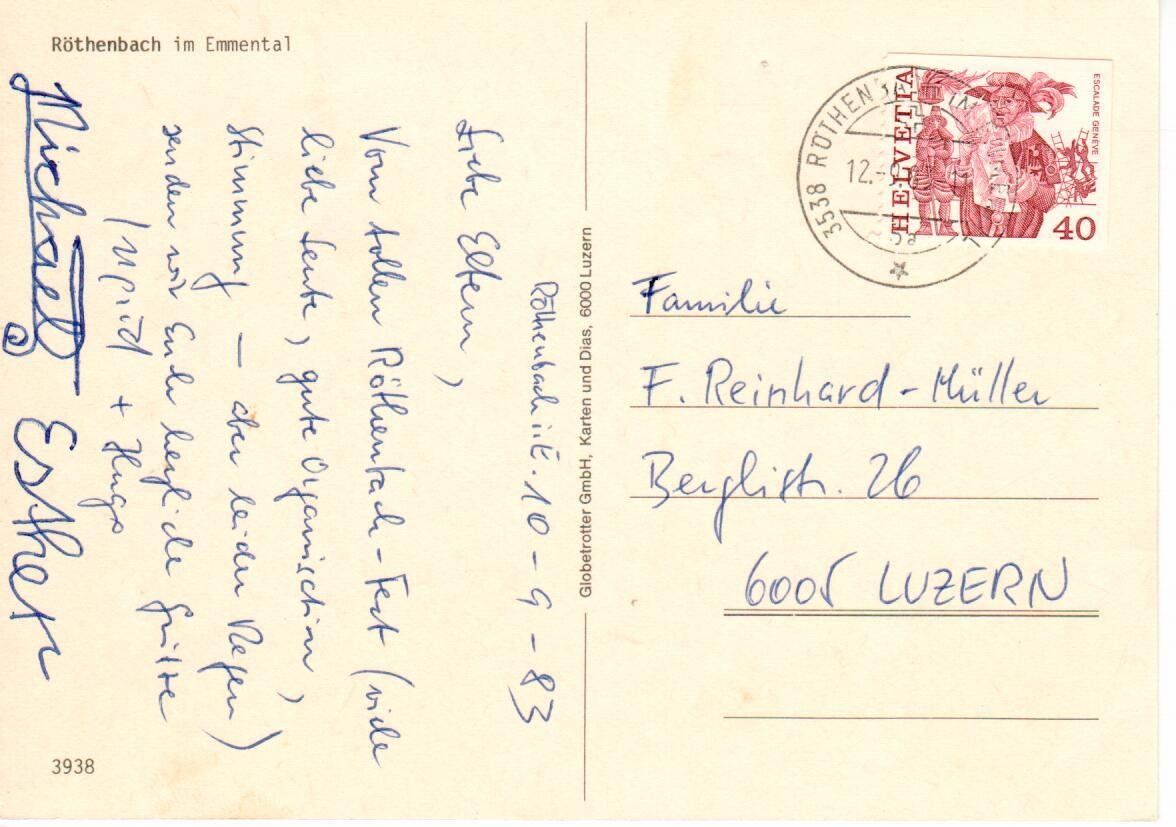 Röthenbach im Emmental
Röthenbach i.E. 10-9-83
Liebe Eltern,
Vom tollen Röthenbach-Fest (viele
liebe Leute, gute Organisation,
Stimmung – aber leider Regen)
senden wir Euch herzliche Grüsse
+ Hugo
Michael
Esther
3938
Globetrotter GmbH, Karten und Dias, 6000 Luzern
3538 RÖTHENBACH IM
12.-9.
HELVETIA
ESCALADE GENÈVE
40
Familie
F. Reinhard-Müller
Berglistr. 26
6005 LUZERN